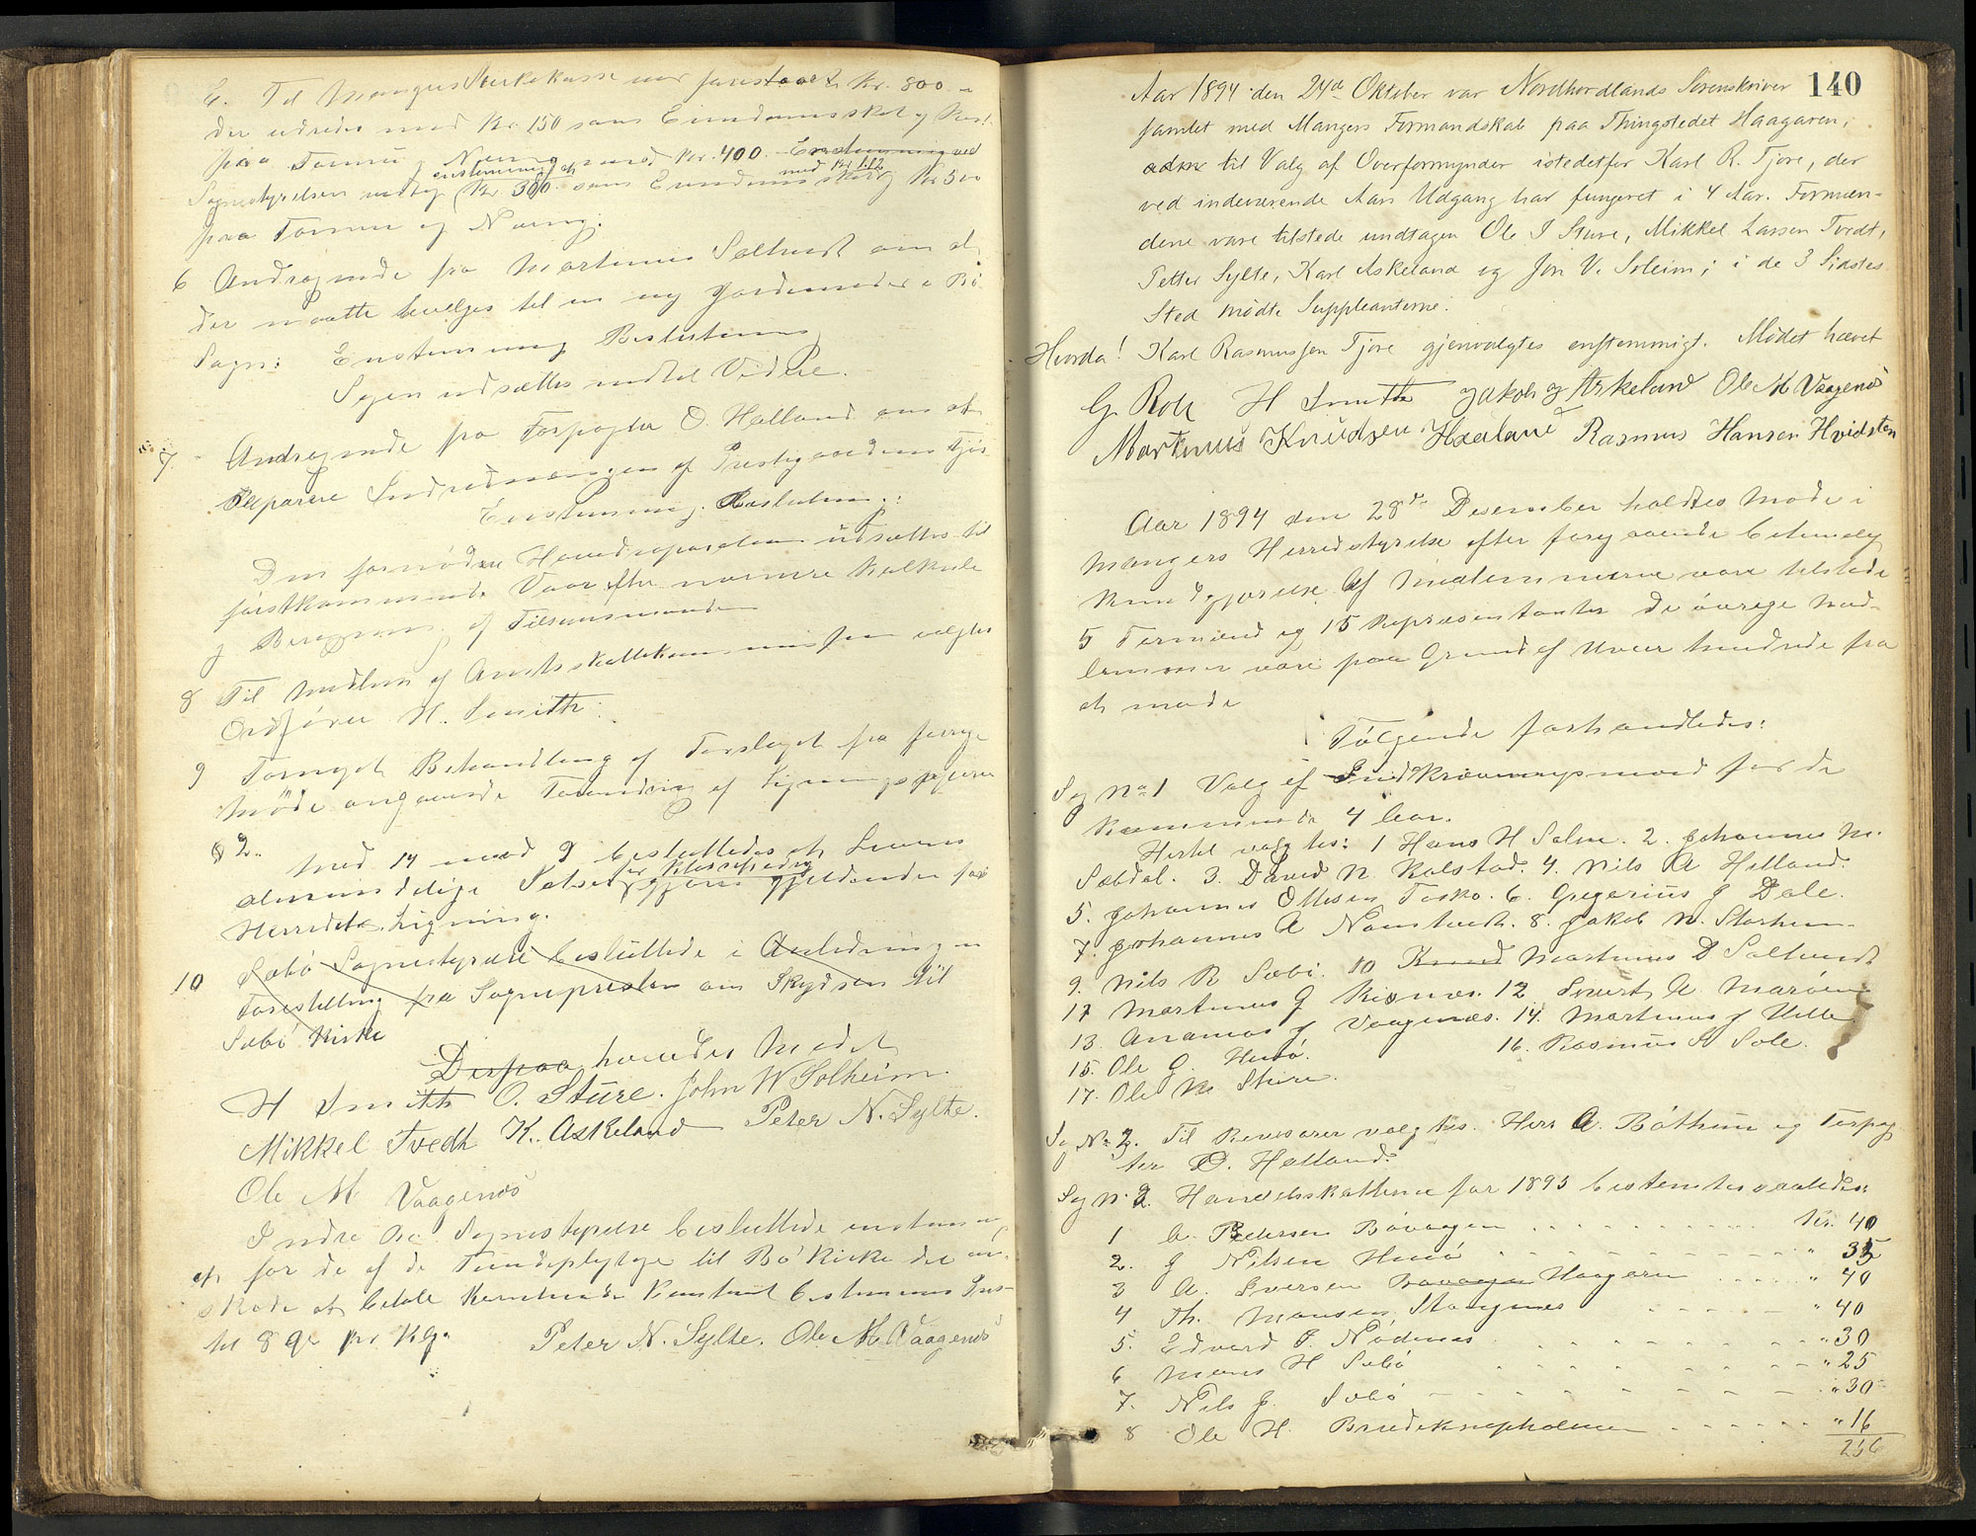 E. Til Mangers Kirkekasse som forestaar Kr. 800 -
der udredes med Kr. 150 som Eiendomsskat og Rest
paa Formue og Næring med Kr. 400. Enstemmig ved
enstemmig at med Kr 1.12
Sognestyrelsen vedtog Kr. 300 som Eiendomsskat og Kr 500
paa Formue og Næring.
6 Andragende fra Martinus Soltvedt om at
der maatte bevilges til en ny Jordemoder i Bø
Sogn: Enstemmig Beslutning
Sagen udsættes indtil Videre.
7. Andragende fra Forpagter O. Helland om at
Reparere Indredningen af Prestegaardens Fjøs
Enstemmig Beslutning:
Den fornødne Hovedreparation udsættes til
førstkommende Vaar efter nærmere Kalkule
og Beregning af Tilsynsmanden
8 Til Medlem af Amtsskattekommissionen valgtes
Ordfører H. Smith.
9 Fornyet Behandling af Forslaget fra forrige
Møde angaaende Forandring af Ligningsreglerne
§ 2. Med 14 mod 9 besluttedes at Lovens
er Klassifisering
almindelige Satser gjøres gjeldende for
Herredets Ligning.
10 Sæbø Sognestyrelse besluttede i Anledning en
Forestilling fra Sognepresten om Skydsen til
Sæbø Kirke
Derpaa hævedes Mødet
H Smith O. Sture. John W Solheim.
Mikkel Tvedt K. Askeland Peter N. Sylte.
Ole M Vaagenes
Indre Bø Sognestyrelse besluttede enstemmig
at for de af de Tiendepligtige til Bø Kirke der øn-
skede at betale Korntiende Konstant bestemmes Pris-
til 8 Øre pr. Kg. Peter N. Sylte. Ole M. Vaagenes
140
Aar 1894 den 24de Oktober var Nordhordlands Sorenskriver
samlet med Mangers Formandskab paa Thingstedet Haagaren,
til Valg af Overformynder istedetfor Karl R. Tjore, der
ved indeværende Aars Udgang har fungeret i 4 Aar. Formæn-
dene vare tilstede undtagen Ole I Sture, Mikkel Larsen Tvedt,
Petter Sylte, Karl Askeland og Jon V. Solheim; i de 3 Sidstes
Sted mødte Suppleanterne.
Hvorda! Karl Rasmussen Tjore gjenvalgtes enstemmigt. Mødet hævet
G. H Smith Jakob J Askeland Ole M Vaagenes
Martinus Knudsen Haaland Rasmus Hansen Hvidsten
Aar 1894 den 28de Desember holdtes Møde i
Mangers Herredsstyrelse efter foregaaende betimelig
Kundgjørelse. Af Medlemmerne vare tilstede
5 Formænd og 15 Repræsentanter de øvrige Med-
lemmer vare paa Grund af Uveir hindrede fra
at møde
Følgende forhandledes:
Sag No 1 Valg af Indkrævningsmænd for de
kommende 4 Aar.
Hertil valgtes: 1 Hans H Salm. 2. Johannes M.
Sæbdal. 3. David N. Kolstad. 4. Nils A Helland.
5. Johannes Ottesen Toska. 6. Gregorius J Dale.
7. Johannes A Namtvedt. 8. Jakob N. Storheim.
9. Nils R Sæbø. 10 Knud Martinus D Soltvedt
11 Martinus J Risnæs. 12 Sivert A Marøen
13. Ananias J Vaagenæs. 14. Martinus J Hille
15. Ole G. Hernø. 16. Rasmus A Sole.
17. Ole M. Sture.
Sag No 2. Til Revisorer valgtes. Herr A. Bøthun og Forpag
ter O. Helland.
Sag N. 2. Handelsskatterne for 1895 bestemtes saaledes:
1 A. Pedersen Bøvaagen Kr. 40
2. J Nilsen Hernø " 35
3 A. Iversen Haagaren " 40
4 Th. Monsen Vaagenes " 40
5. Edvard J. Nødenes " 30
6 Mons H Sæbø " 25
7. Nils J. Sæbø " 30
8 Ole H. Brudeknapholmen " 16
256